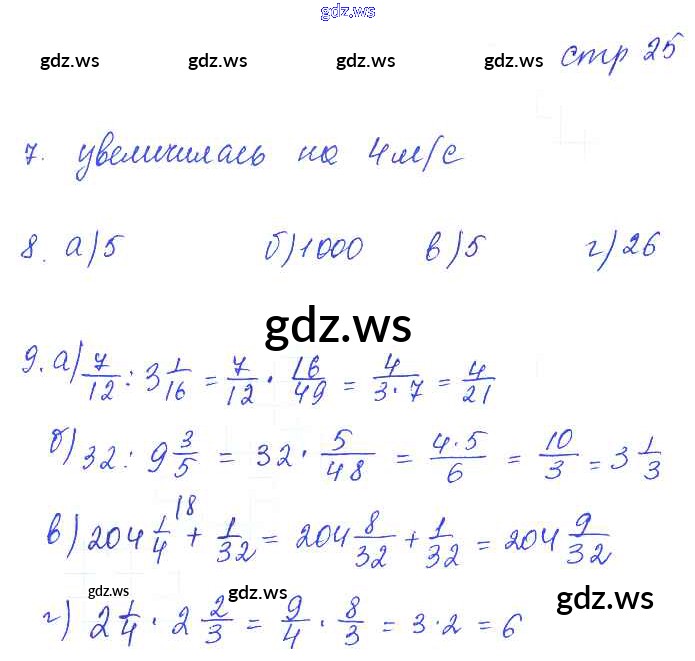 gdz.ws
gdz.ws gdz.ws gdz.ws gdz.ws стр 25
7. увеличилась на 4 м/с
8. а) 5 б) 1000 в) 5 г) 26
gdz.ws
9. а) 7/12 : 3 1/16 = 7/12 · 16/49 = 4/(3·7) = 4/21
б) 32 : 9 3/5 = 32 · 5/48 = (4·5)/6 = 10/3 = 3 1/3
в) 204 1/4 \18 + 1/32 = 204 8/32 + 1/32 = 204 9/32
gdz.ws gdz.ws gdz.ws
г) 2 1/4 · 2 2/3 = 9/4 · 8/3 = 3·2 = 6